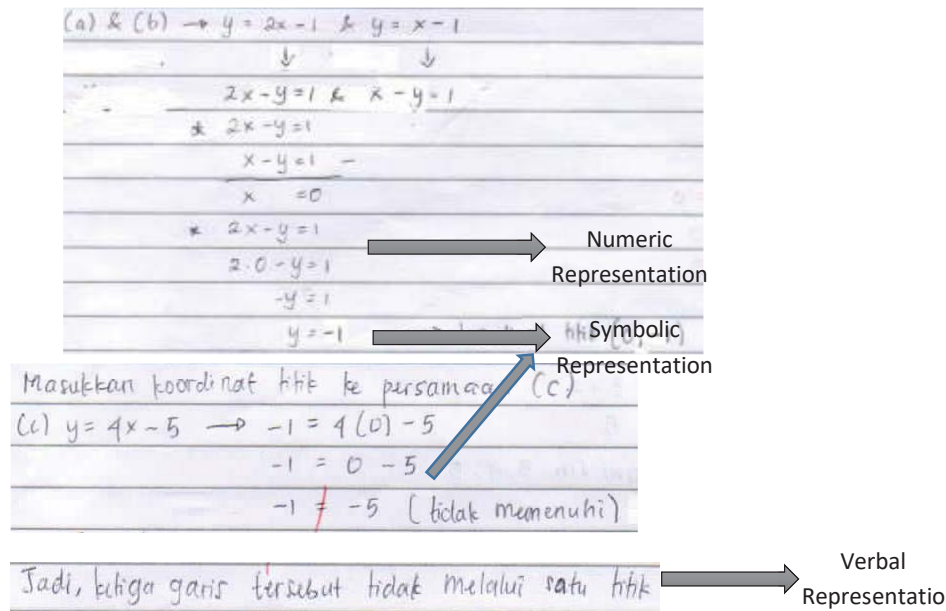 (a) & (b) → y = 2x - 1 & y = x - 1
↓ ↓
2x - y = 1 & x - y = 1
* 2x - y = 1
x - y = 1 -
x = 0
* 2x - y = 1
Numeric
2.0 - y = 1
Representation
-y = 1
y = -1
titik (0, -1)
Symbolic
Representation
Masukkan koordinat titik ke persamaan (c)
(c) y = 4x - 5 → -1 = 4(0) - 5
-1 = 0 - 5
-1 ≠ -5 (tidak memenuhi)
Jadi, ketiga garis tersebut tidak melalui satu titik
Verbal
Representatio